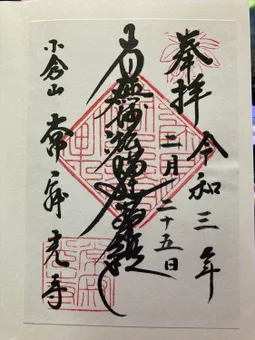 奉拝
令和三年
二月二十五日
南無妙法蓮華経
小倉山
常寂光寺